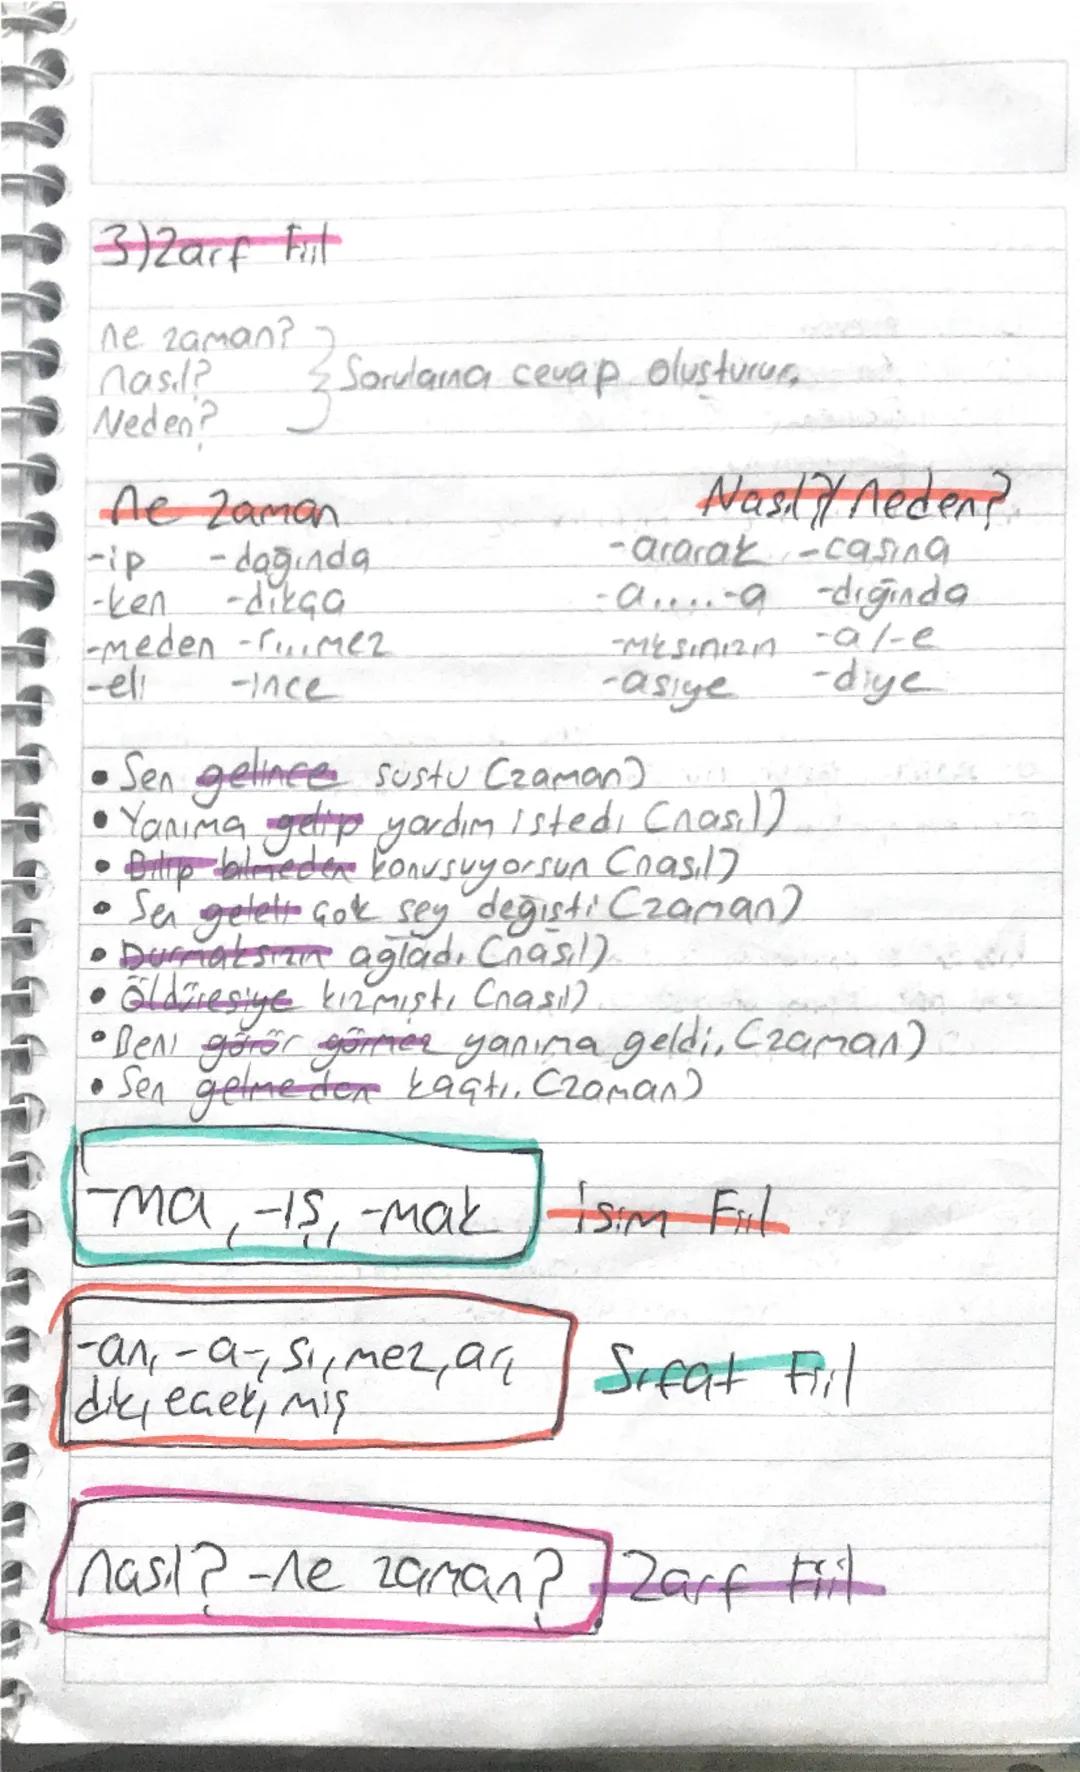 3) Zarf Fiil
ne zaman?
nasıl?
Neden?
Sorularına cevap oluşturur.
ne zaman
Nasıl?/ neden?
-ip -dağında
-ararak -casına
-ken -dikça
-a.....-a -dığında
-meden -r...mez
-mksınızın -a/-e
-eli -ince
-asıye -diye
• Sen gelince sustu (zaman)
• Yanıma gelip yardım istedi (nasıl)
• Bilip bilmeden konuşuyorsun (nasıl)
• Sen geleli çok şey değişti (zaman)
• Durmaksızın ağladı (nasıl)
• Öldüresiye kızmıştı (nasıl)
• Beni görör görmez yanıma geldi. (zaman)
• Sen gelmeden kaçtı. (zaman)
-ma, -ış, -mak isim Fiil
-an, -a-, sı, mez, ar,
dik, ecek, miş
Sıfat Fiil
nasıl? -ne zaman? Zarf Fiil